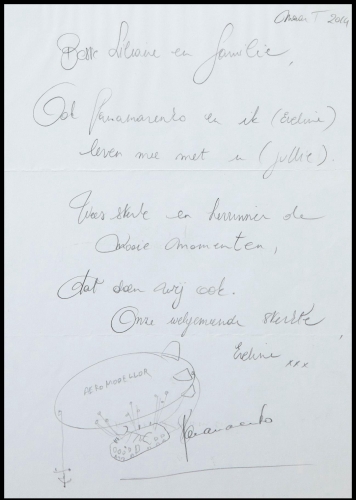 Maart 2014
Beste Liliane en familie,
Ook Panamarenko en ik (Eveline)
leven mee met u (jullie).
Wees sterk en herinner de
mooie momenten,
dat doen wij ook.
Onze welgemeende sterkte
Eveline xxx
AEROMODELLER
Panamarenko